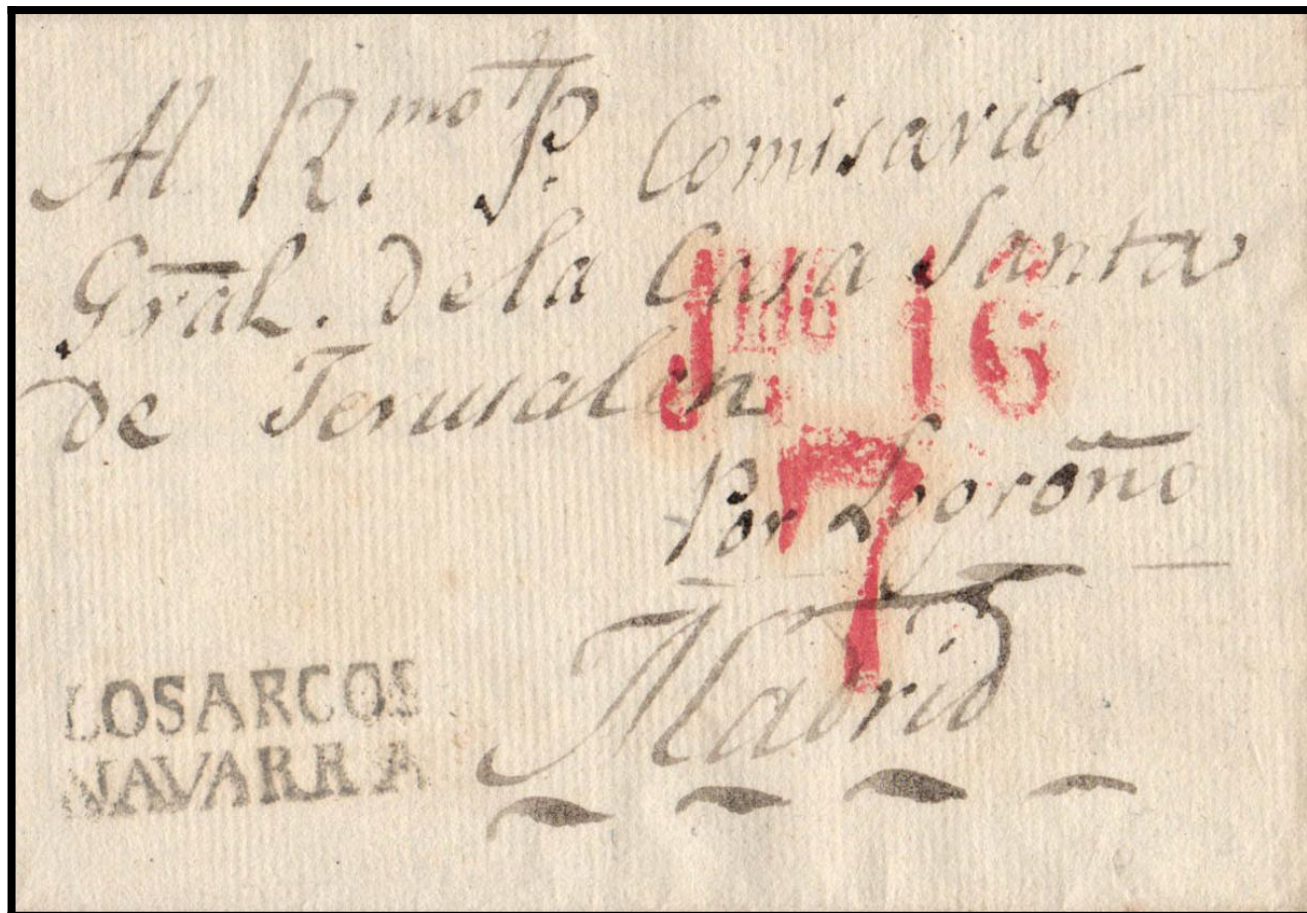 Al R.mo P. Comisario
Gràl. de la Casa Santa
de Jerusalen
16
7
Por Logroño
Madrid
LOSARCOS
NAVARRA